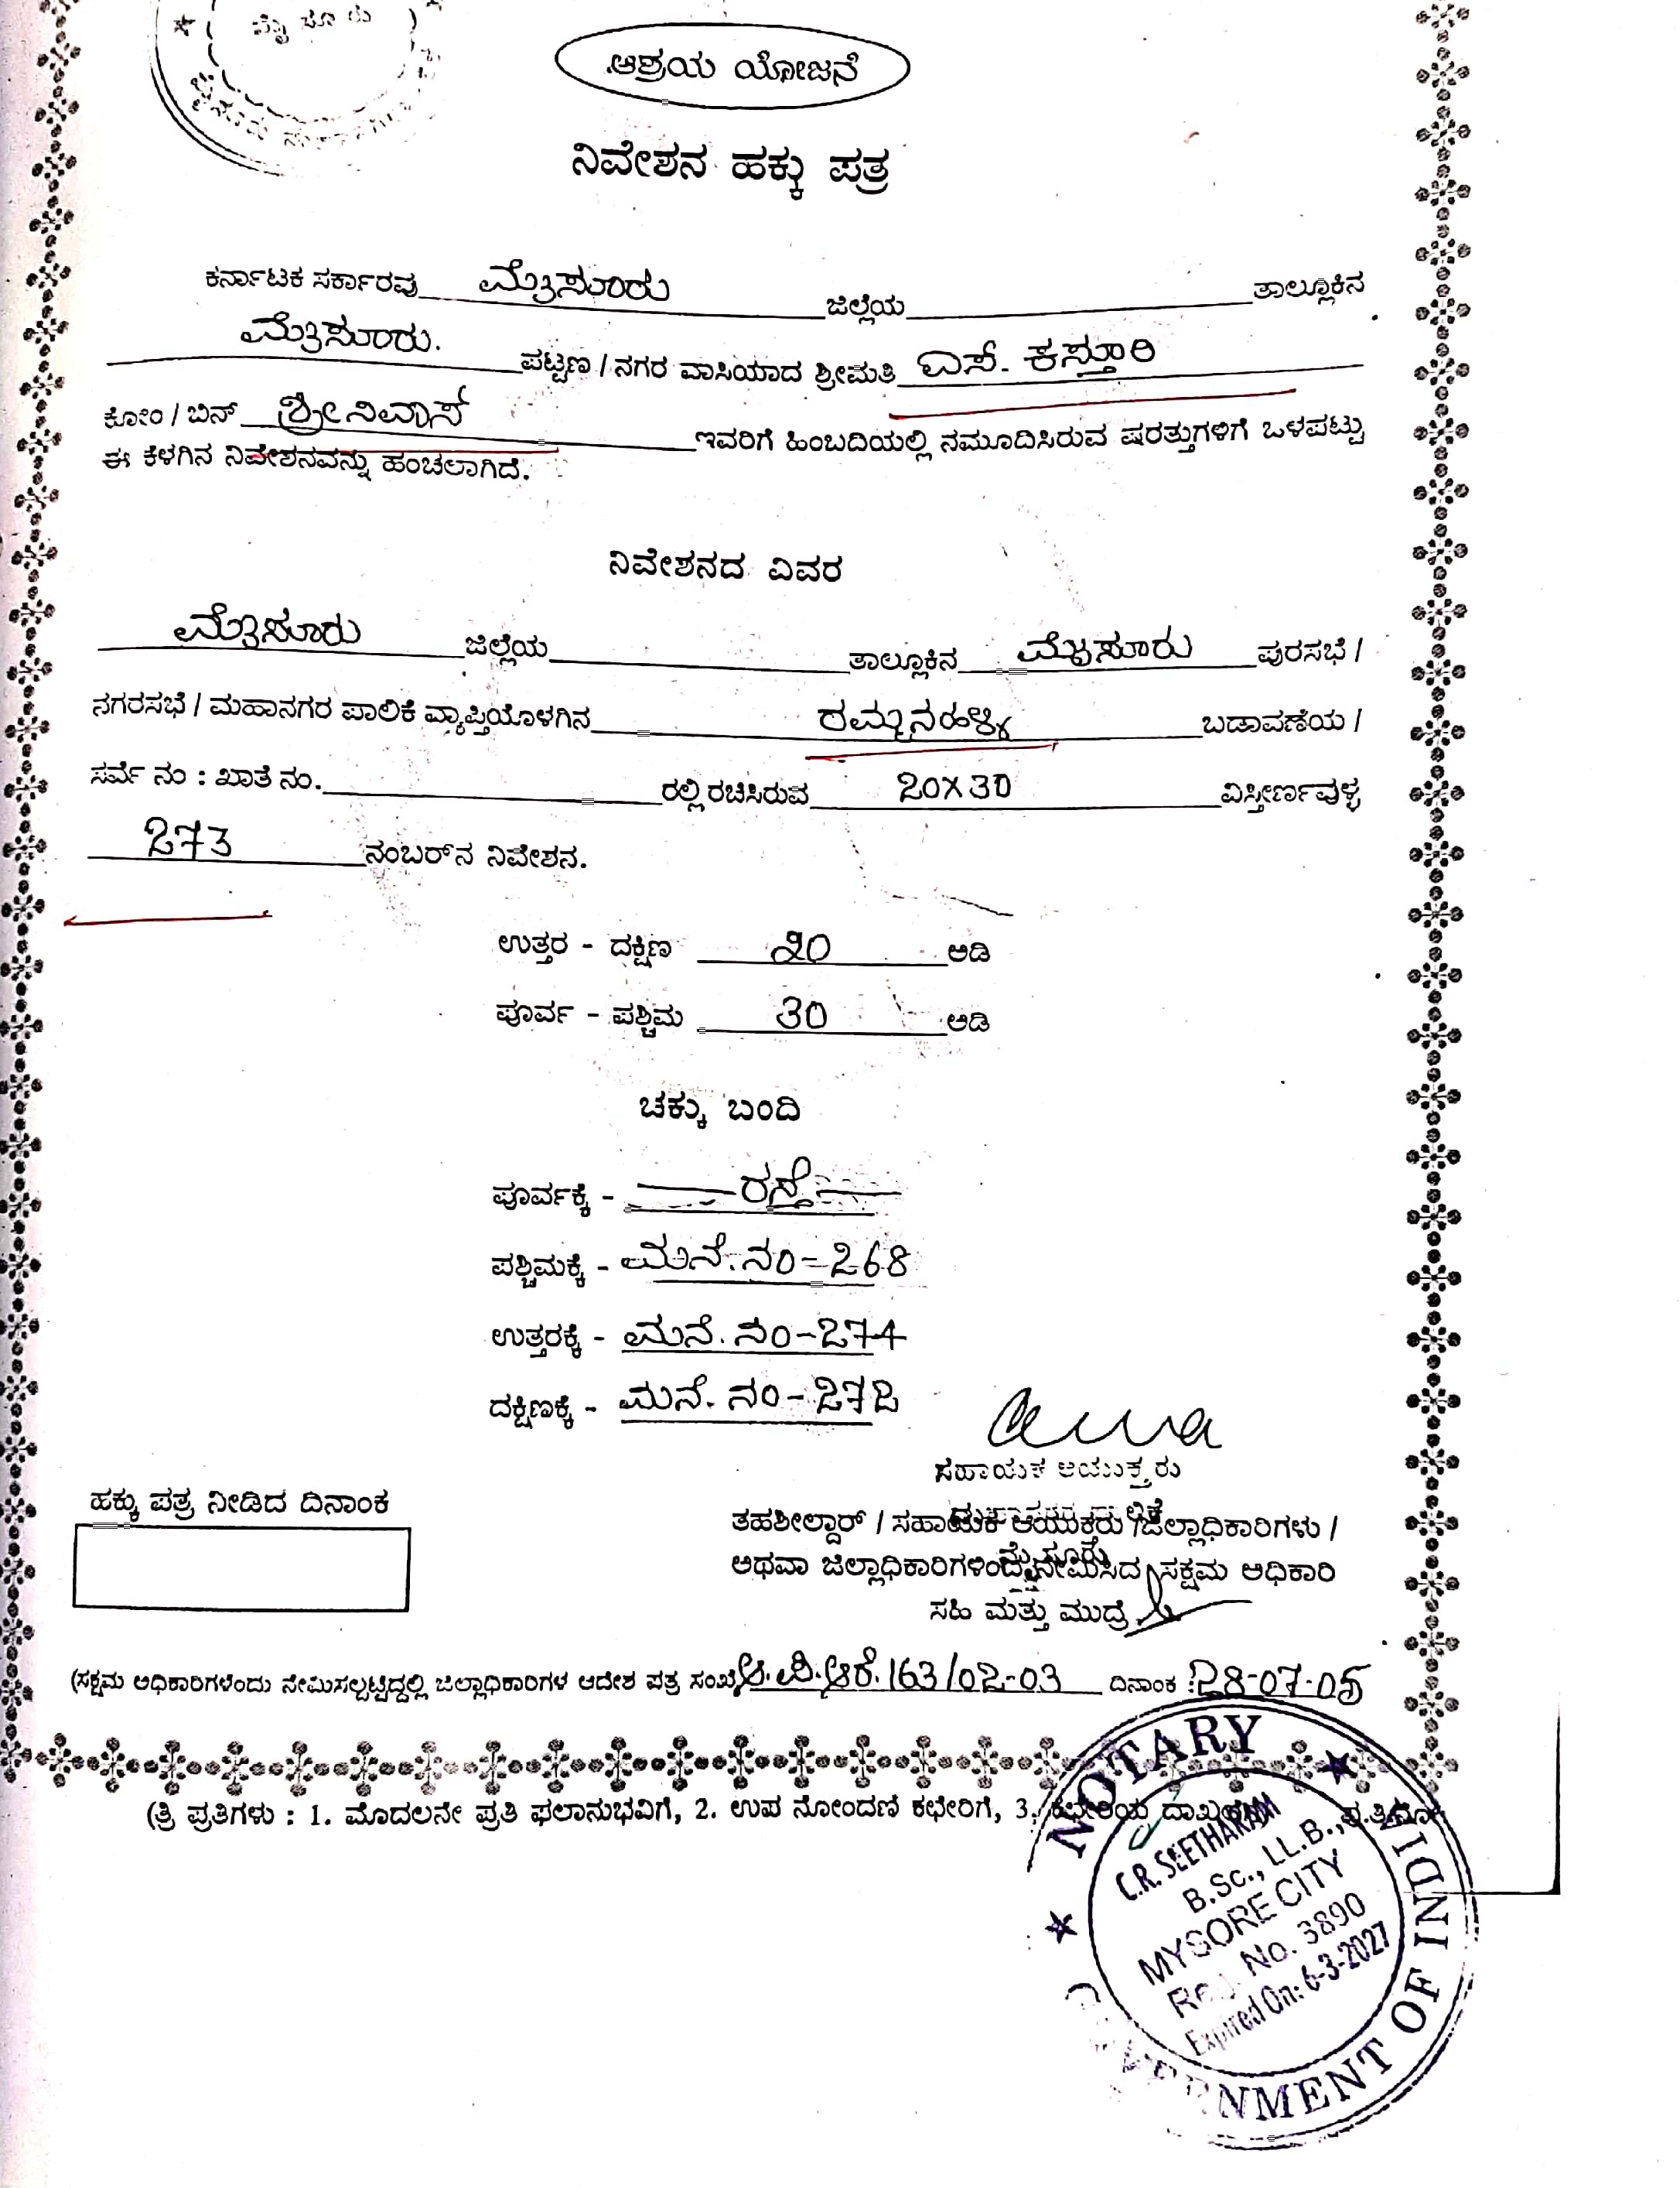 ಮೈಸೂರು
ಆಶ್ರಯ ಯೋಜನೆ
ನಿವೇಶನ ಹಕ್ಕು ಪತ್ರ
ಕರ್ನಾಟಕ ಸರ್ಕಾರವು ಮೈಸೂರು ಜಿಲ್ಲೆಯ ತಾಲ್ಲೂಕಿನ
ಮೈಸೂರು. ಪಟ್ಟಣ / ನಗರ ವಾಸಿಯಾದ ಶ್ರೀಮತಿ ಎಸ್. ಕಸ್ತೂರಿ
ಕೋಂ / ಬಿನ್ ಶ್ರೀನಿವಾಸ್ ಇವರಿಗೆ ಹಿಂಬದಿಯಲ್ಲಿ ನಮೂದಿಸಿರುವ ಷರತ್ತುಗಳಿಗೆ ಒಳಪಟ್ಟು
ಈ ಕೆಳಗಿನ ನಿವೇಶನವನ್ನು ಹಂಚಲಾಗಿದೆ.
ನಿವೇಶನದ ವಿವರ
ಮೈಸೂರು ಜಿಲ್ಲೆಯ ತಾಲ್ಲೂಕಿನ ಮೈಸೂರು ಪುರಸಭೆ /
ನಗರಸಭೆ / ಮಹಾನಗರ ಪಾಲಿಕೆ ವ್ಯಾಪ್ತಿಯೊಳಗಿನ ರಮ್ಮನಹಳ್ಳಿ ಬಡಾವಣೆಯ /
ಸರ್ವೆ ನಂ : ಖಾತೆ ನಂ. ರಲ್ಲಿ ರಚಿಸಿರುವ 20X30 ವಿಸ್ತೀರ್ಣವುಳ್ಳ
273 ನಂಬರ್‌ನ ನಿವೇಶನ.
ಉತ್ತರ - ದಕ್ಷಿಣ 20 ಅಡಿ
ಪೂರ್ವ - ಪಶ್ಚಿಮ 30 ಅಡಿ
ಚಕ್ಕು ಬಂದಿ
ಪೂರ್ವಕ್ಕೆ - ರಸ್ತೆ
ಪಶ್ಚಿಮಕ್ಕೆ - ಮನೆ.ನಂ-268
ಉತ್ತರಕ್ಕೆ - ಮನೆ.ನಂ-274
ದಕ್ಷಿಣಕ್ಕೆ - ಮನೆ.ನಂ-272
ಸಹಾಯಕ ಆಯುಕ್ತರು
ಹಕ್ಕು ಪತ್ರ ನೀಡಿದ ದಿನಾಂಕ
ತಹಶೀಲ್ದಾರ್ / ಸಹಾಯಕ ಆಯುಕ್ತರು / ಜಿಲ್ಲಾಧಿಕಾರಿಗಳು /
ಮೈಸೂರು
ಅಥವಾ ಜಿಲ್ಲಾಧಿಕಾರಿಗಳಿಂದ ನೇಮಿಸಿದ ಸಕ್ಷಮ ಅಧಿಕಾರಿ
ಸಹಿ ಮತ್ತು ಮುದ್ರೆ
(ಸಕ್ಷಮ ಅಧಿಕಾರಿಗಳೆಂದು ನೇಮಿಸಲ್ಪಟ್ಟಿದ್ದಲ್ಲಿ ಜಿಲ್ಲಾಧಿಕಾರಿಗಳ ಆದೇಶ ಪತ್ರ ಸಂಖ್ಯೆ 163/02-03 ದಿನಾಂಕ : 28-07-05
(ತ್ರಿ ಪ್ರತಿಗಳು : 1. ಮೊದಲನೇ ಪ್ರತಿ ಫಲಾನುಭವಿಗೆ, 2. ಉಪ ನೋಂದಣಿ ಕಛೇರಿಗೆ, 3. ಕಛೇರಿಯ
NOTARY
C.R. SEETHARAM
B.Sc., LL.B.,
MYSORE CITY
Reg. No. 3890
Expired On: 6-3-2027
GOVERNMENT OF INDIA